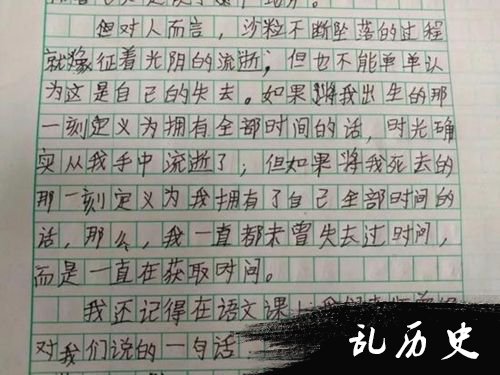 但对人而言，沙粒不断坠落的过程
就像征着光阴的流逝，但也不能单单认
为这是自己的失去。如果将我出生的那
一刻定义为拥有全部时间的话，时光确
实从我手中流逝了；但如果将我死去的
那一刻定义为我拥有了自己全部时间的
话，那么，我一直都未曾失去过时间，
而是一直在获取时间。
我还记得在语文课上
对我们说的一句话
乱历史